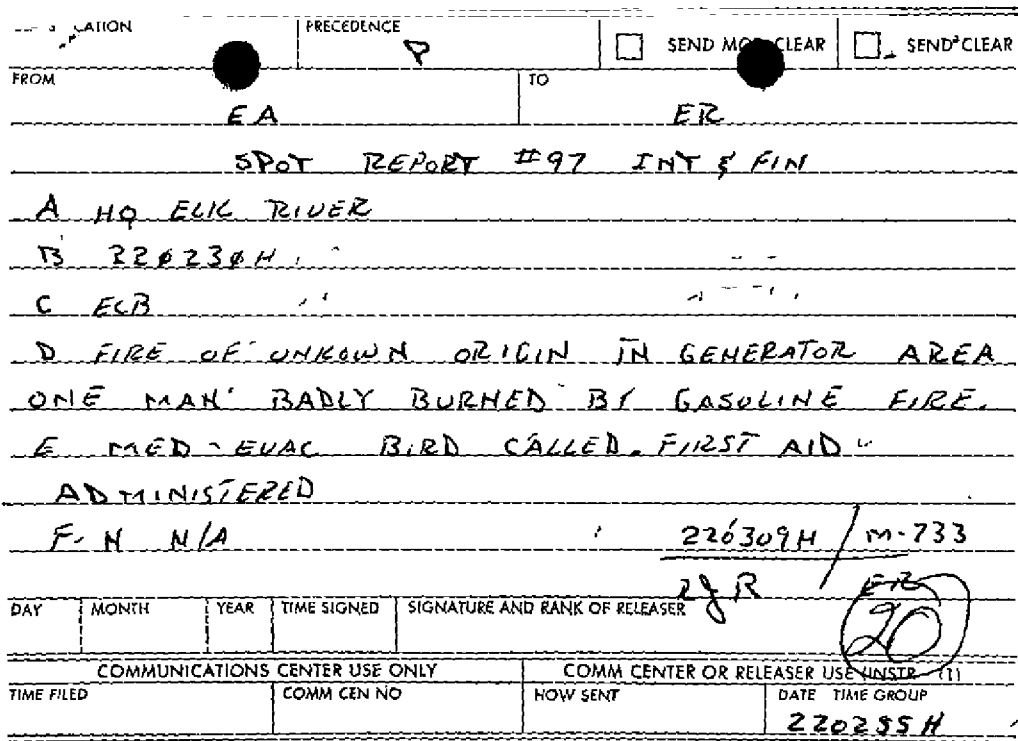 PRECEDENCE
P
SEND MOD CLEAR
SEND CLEAR
FROM
EA
TO
ER
SPOT REPORT #97 INT & FIN
A HQ ELK RIVER
B 22Ø23ØH
C ECB
D FIRE OF UNKOWN ORIGIN IN GENERATOR AREA
ONE MAN BADLY BURNED BY GASOLINE FIRE.
E MED-EVAC BIRD CALLED. FIRST AID
ADMINISTERED
F-N N/A
220309H / M-733
ER
20
DAY
MONTH
YEAR
TIME SIGNED
SIGNATURE AND RANK OF RELEASER
COMMUNICATIONS CENTER USE ONLY
COMM CENTER OR RELEASER USE
TIME FILED
COMM CEN NO
HOW SENT
DATE TIME GROUP
220255H